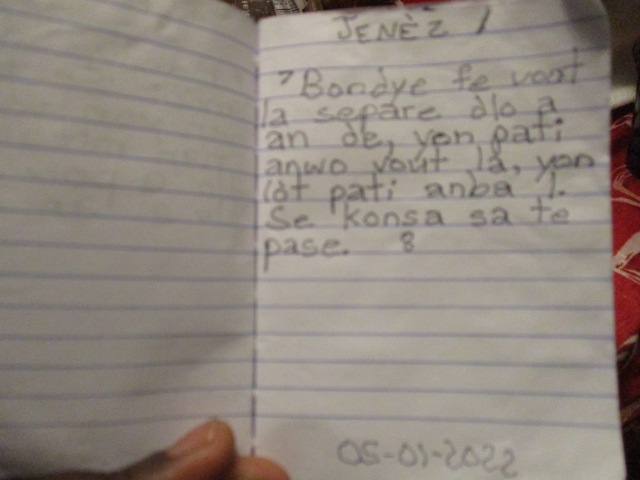 JENÈZ 1
7 Bondye fe vout
la separe dlo a
an de, yon pati
anwo vout la, yon
lòt pati anba l.
Se konsa sa te
pase. 8
05-01-2022